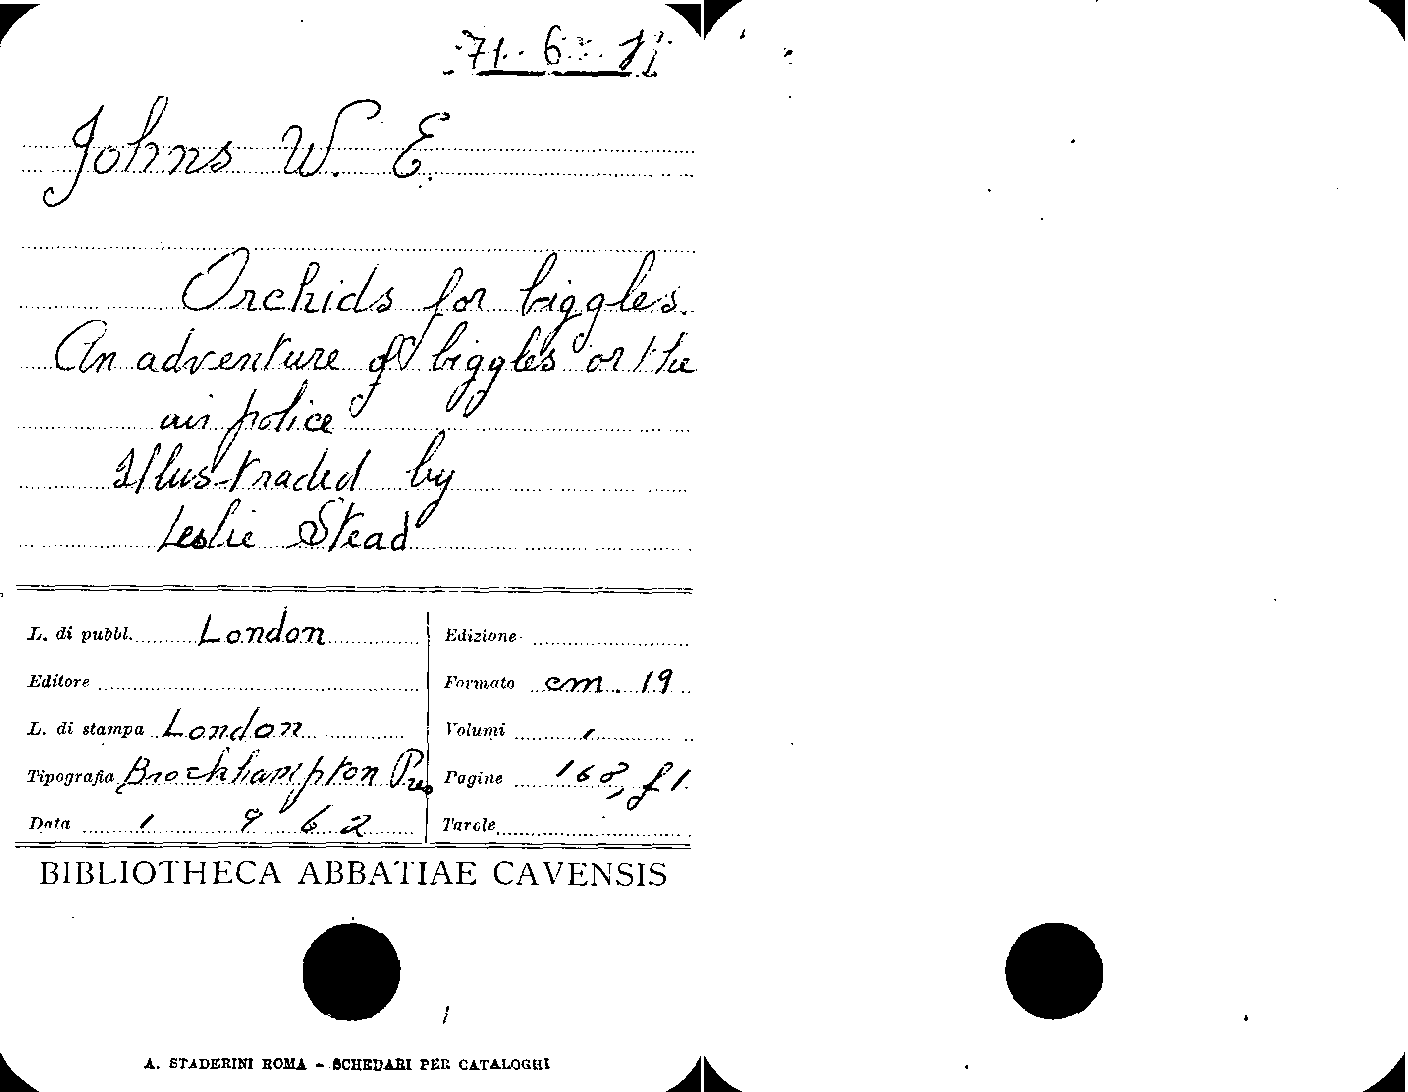 71. 6. 11
Johns W. E.
Orchids for biggles.
An adventure of biggles or the
air police
Illustraded by
Leslie Stead
L. di pubbl. London
Editore
L. di stampa London
Tipografia Brockhampton Pres
Data 1962
Edizione
Formato cm. 19
Volumi 1
Pagine 168, f 1.
Tavole
BIBLIOTHECA ABBATIAE CAVENSIS
A. STADERINI ROMA - SCHEDARI PER CATALOGHI